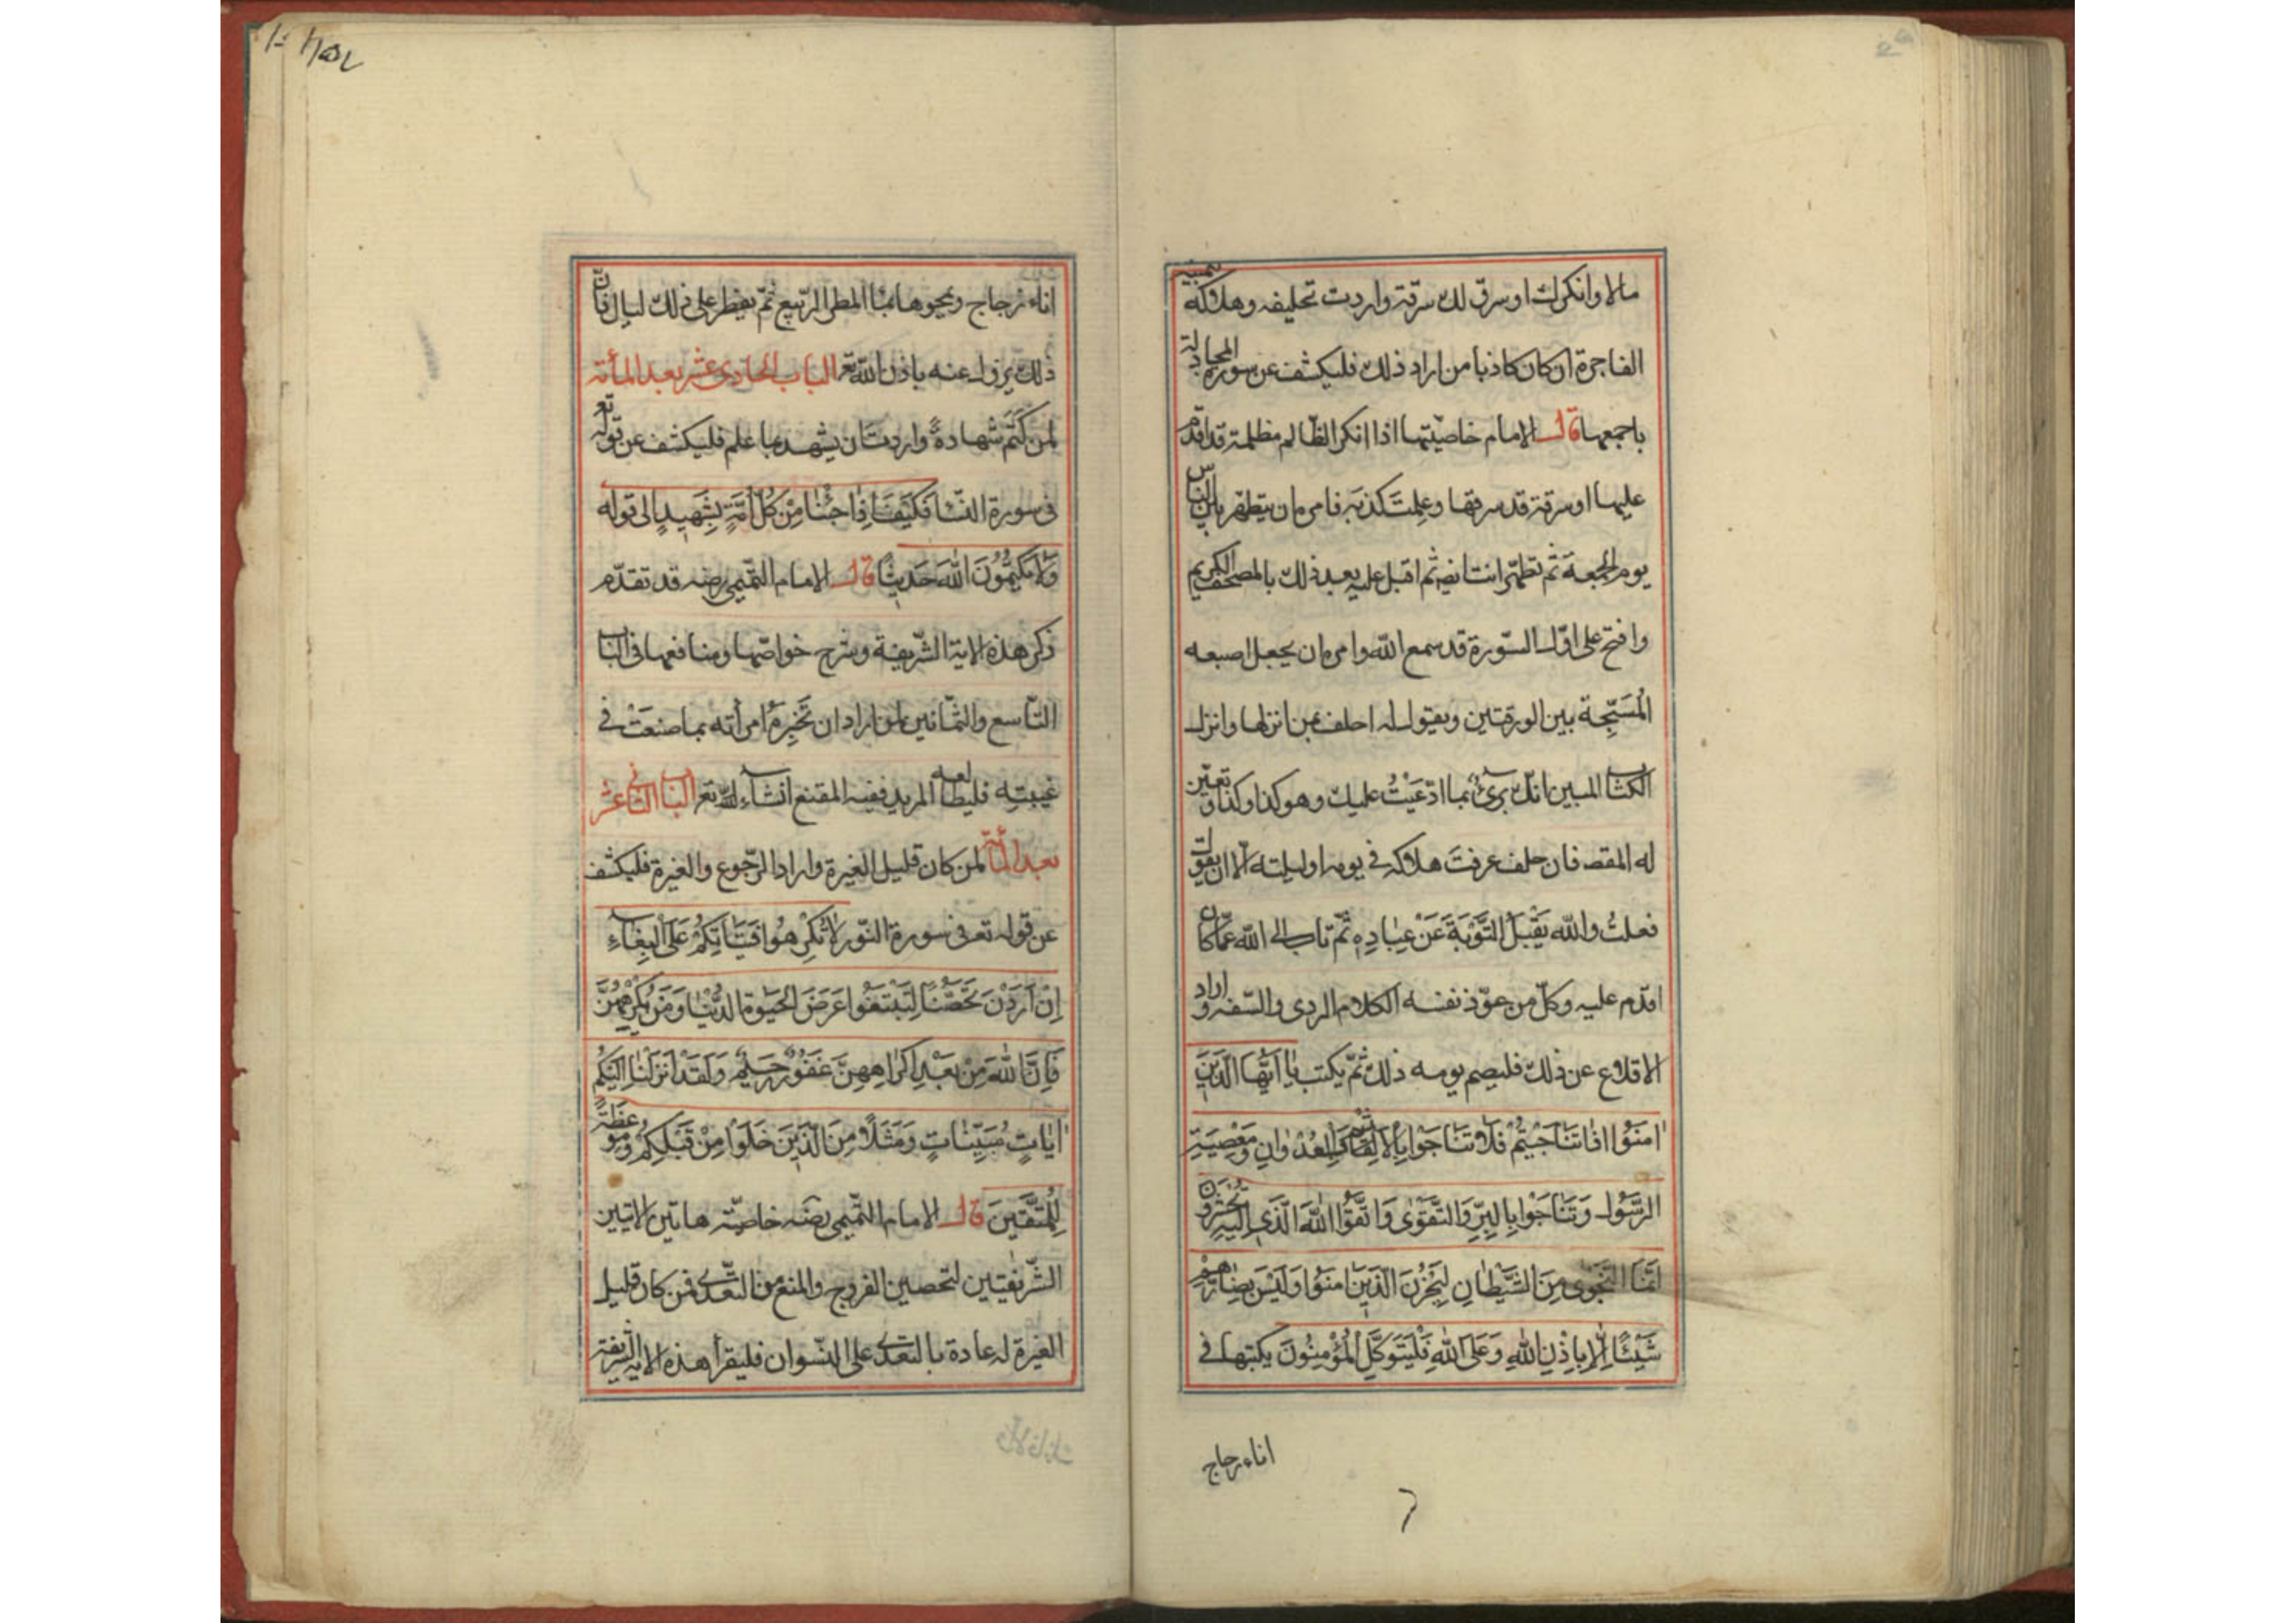 مالا وانكرك او سرق لك سرقة واردت تحليفه وهلاكه بيمينه
الفاجرة ان كان كاذبا من اراد ذلك فليكشف عن سورة المجادلة
باجمعها قال الامام خاصيتها اذا انكر الظالم مظلمة قد اقدم
عليها او سرقة قد سرقها وعلمتَ كذبه فامره ان يتطهر بين الناس
يوم الجمعة ثم تطهّر انت ايضا ثم اقبل عليه بعد ذلك بالمصحف الكريم
وافتح على اوّل السّورة قد سمع الله وامره ان يجعل اصبعه
المُسَبِّحة بين الورقتين ويقول له احلف بمن انزلها وانزل
الكتاب المبين انك برئ مما ادّعَيْتُ عليك وهو كذا وكذا وتعيّن
له المقصد فان حلف عرفتَ هلاكه في يومه او ليلته الّا ان يقول
فعلتُ والله يَقْبَلُ التَّوْبَةَ عَنْ عِبَادِهِ ثمّ تاب الى الله عمّا كان
اقدم عليه وكلّ من عوّد نفسه الكلام الردى والسّفه واراد
الاقلاع عن ذلك فليصم يومه ذلك ثمّ يكتب يَا اَيُّهَا الَّذِينَ
اٰمَنُوْا اذَا تَنَاجَيْتُمْ فَلَا تَتَنَاجَوْا بِالْاِثْمِ وَالْعُدْوَانِ وَمَعْصِيَةِ
الرَّسُوْلِ وَتَنَاجَوْا بِالْبِرِّ وَالتَّقْوٰى وَاتَّقُوا اللهَ الَّذِى اِلَيْهِ تُحْشَرُوْنَ
اِنَّمَا النَّجْوٰى مِنَ الشَّيْطَانِ لِيَحْزُنَ الَّذِينَ اٰمَنُوْا وَلَيْسَ بِضَارِّهِمْ
شَيْئًا اِلَّا بِاِذْنِ اللهِ وَعَلَى اللهِ فَلْيَتَوَكَّلِ الْمُؤْمِنُوْنَ يكتبها فى
اناء زجاج
اناء زجاج ويمحوها بماء المطر الربيع ثمّ يفطر على ذلك ليال فانّ
ذلك يزول عنه باذن الله تع الباب الحادى عشر بعد المأئة
لمن كَتَمَ شهادةً واردت ان يشهد بما علم فليكشف عن قوله تع
فى سورة النساء فَكَيْفَ اِذَا جِئْنَا مِنْ كُلِّ اُمَّةٍ بِشَهِيدٍ الى قوله
وَلَا يَكْتُمُوْنَ اللهَ حَدِيثًا قال الامام التّميمى رضه قد تقدّم
ذكر هذه الاية الشّريفة وشرح خواصّها ومنافعها فى الباب
التّاسع والثّمانين لمن اراد ان تخبره امرأته بما صنعَتْ فى
غيبته فليطالعه المريد ففيه المقنع انشاء الله تع الباب الثانى عشر
بعد المأئة لمن كان قليل الغيرة واراد الرّجوع والغيرة فليكشف
عن قوله تع فى سورة النّور لَا تُكْرِهُوا فَتَيَاتِكُمْ عَلَى الْبِغَاءِ
اِنْ اَرَدْنَ تَحَصُّنًا لِتَبْتَغُوا عَرَضَ الْحَيٰوةِ الدُّنْيَا وَمَنْ يُكْرِهْهُنَّ
فَاِنَّ اللهَ مِنْ بَعْدِ اِكْرَاهِهِنَّ غَفُوْرٌ رَحِيْمٌ وَلَقَدْ اَنْزَلْنَا اِلَيْكُمْ
اٰيَاتٍ مُبَيِّنَاتٍ وَمَثَلًا مِنَ الَّذِيْنَ خَلَوْا مِنْ قَبْلِكُمْ وَمَوْعِظَةً
لِلْمُتَّقِيْنَ قال الامام التّميمى رضه خاصيّة هاتين الايتين
الشّريفتين لتحصين الفروج والمنع من التعدّى فمن كان قليل
الغيرة له عادة بالتعدّى على النسوان فليقرأ هذه الاية الشريفة